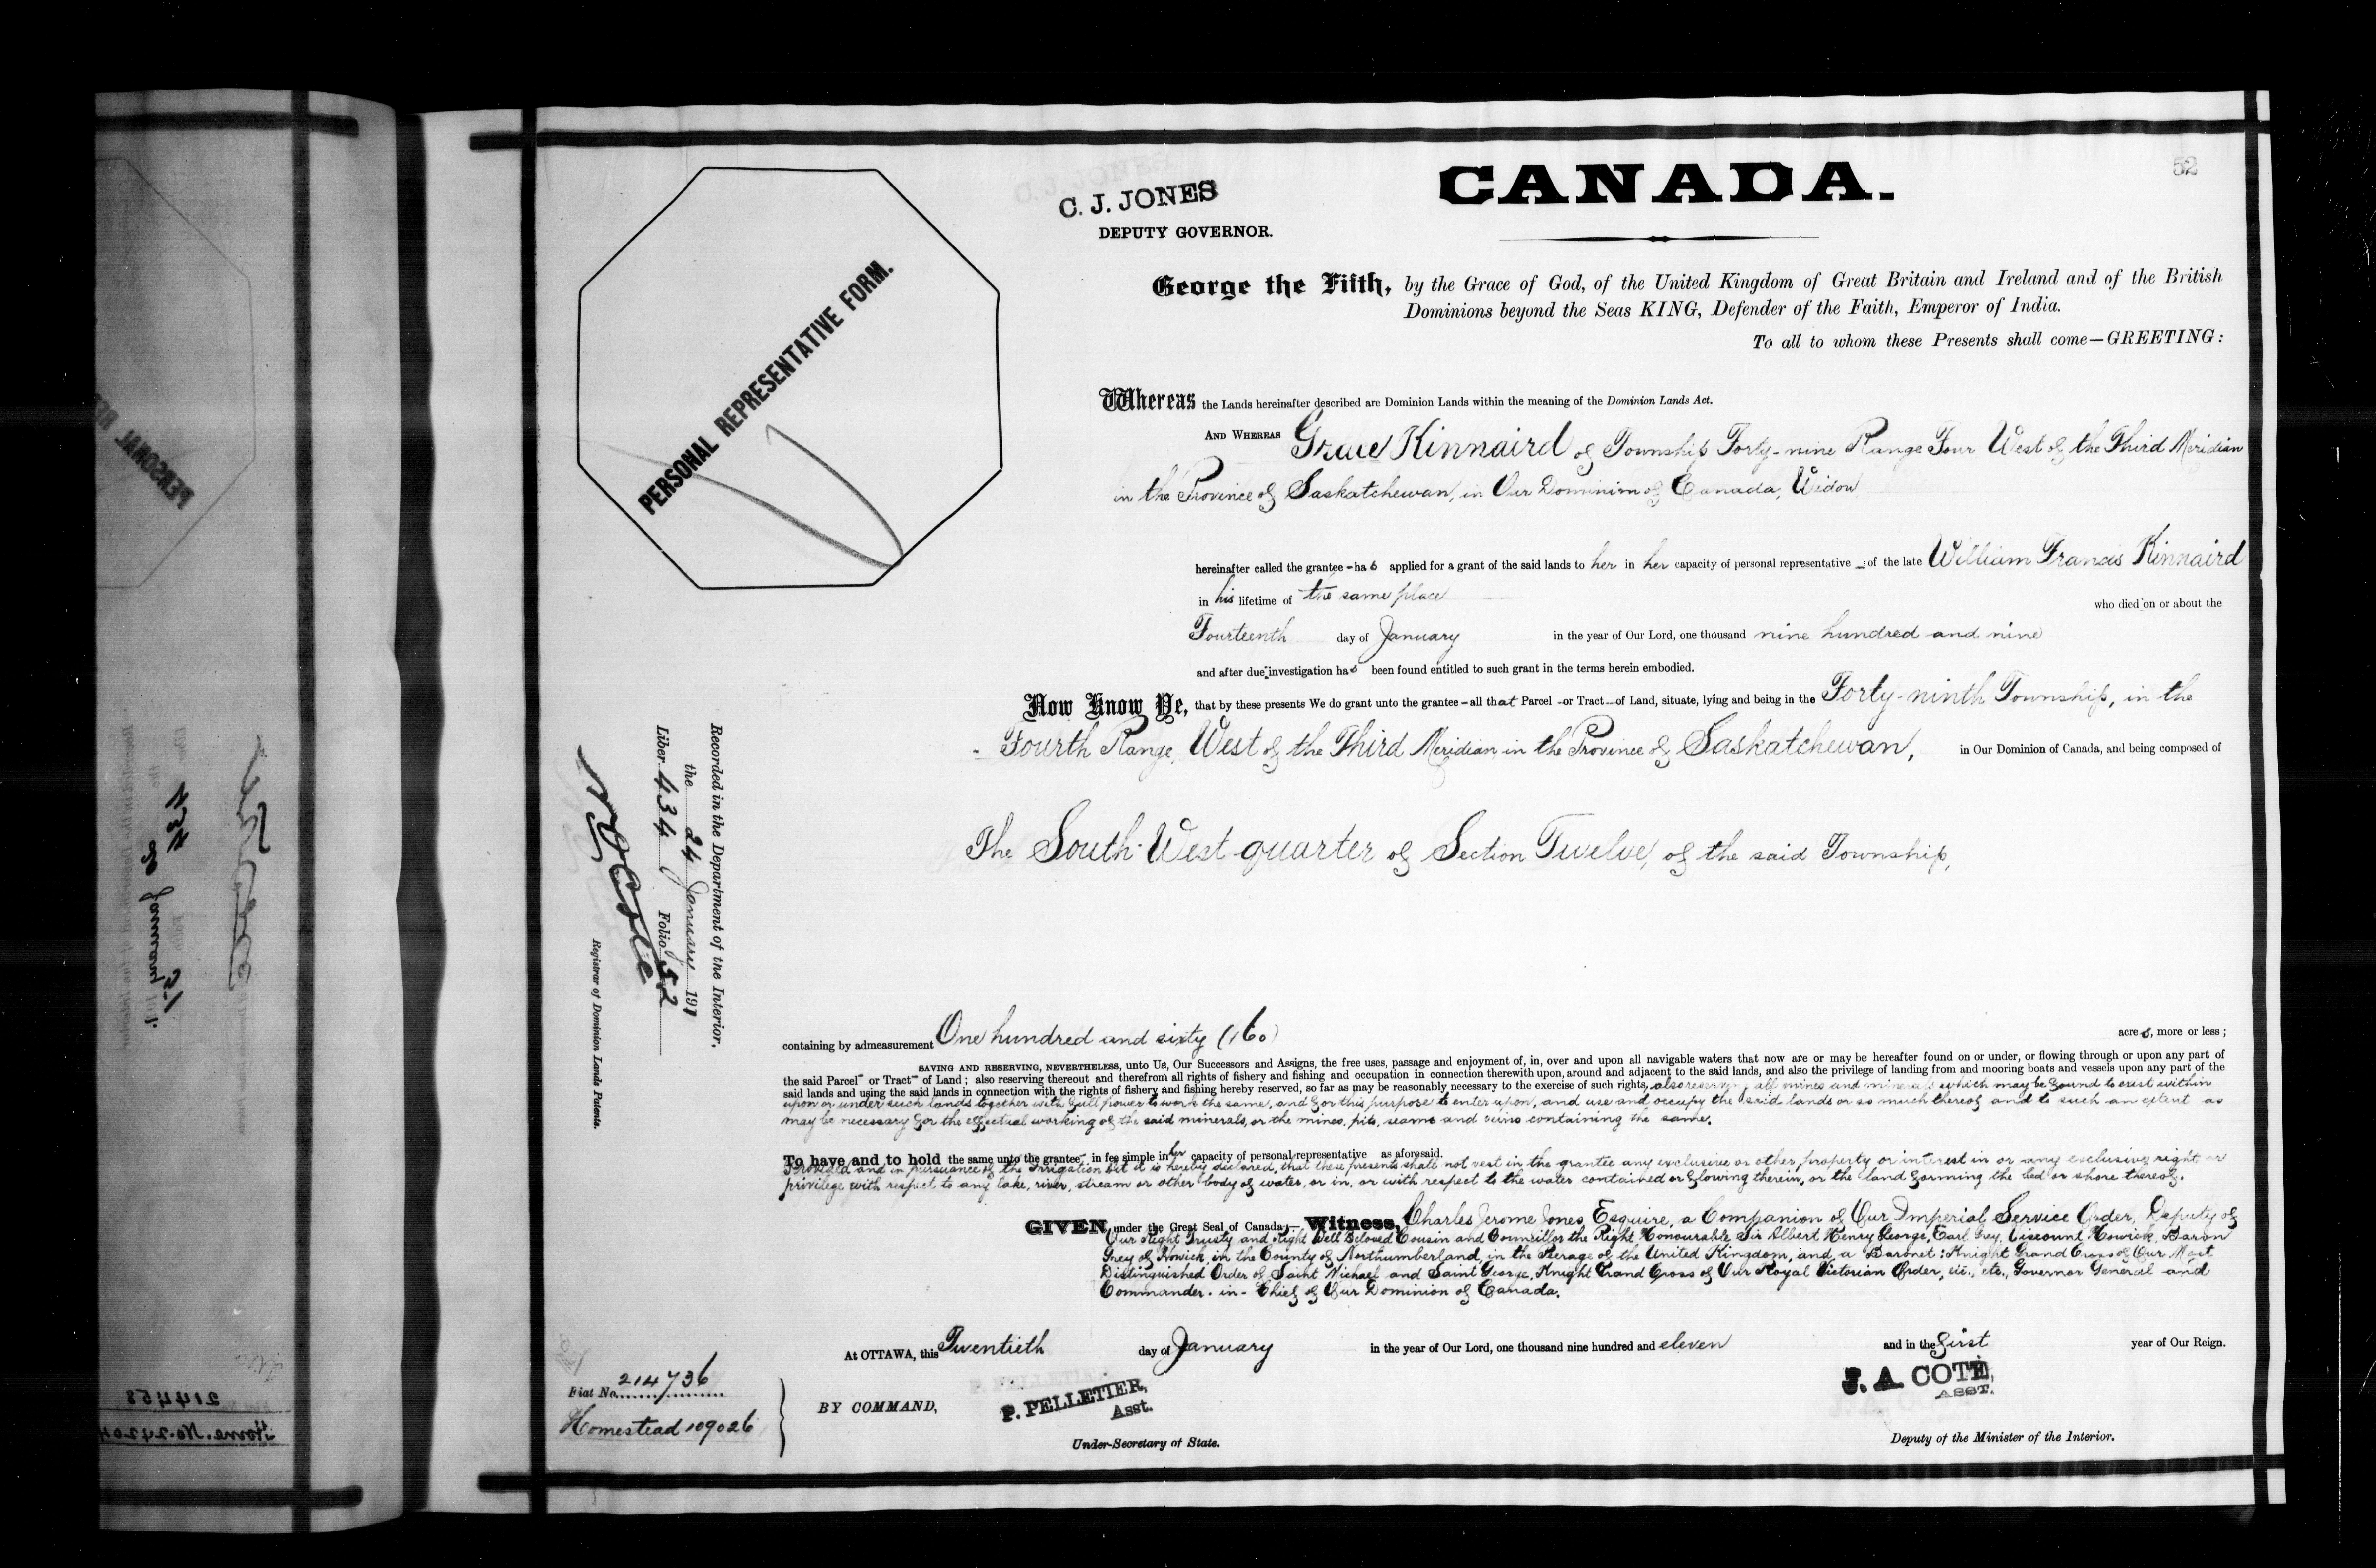 52
C. J. JONES
DEPUTY GOVERNOR.
CANADA.
PERSONAL REPRESENTATIVE FORM.
George the Fifth, by the Grace of God, of the United Kingdom of Great Britain and Ireland and of the British
Dominions beyond the Seas KING, Defender of the Faith, Emperor of India.
To all to whom these Presents shall come—GREETING:
Whereas the Lands hereinafter described are Dominion Lands within the meaning of the Dominion Lands Act.
AND WHEREAS Grace Kinnaird of Township Forty-nine Range Four West of the Third Meridian
in the Province of Saskatchewan, in Our Dominion of Canada, Widow
hereinafter called the grantee - has applied for a grant of the said lands to her in her capacity of personal representative - of the late William Francis Kinnaird
in his lifetime of the same place
who died on or about the
Fourteenth day of January in the year of Our Lord, one thousand nine hundred and nine
and after due investigation has been found entitled to such grant in the terms herein embodied.
Now Know Ye, that by these presents We do grant unto the grantee - all that Parcel - or Tract - of Land, situate, lying and being in the Forty-ninth Township, in the
Fourth Range, West of the Third Meridian, in the Province of Saskatchewan, in Our Dominion of Canada, and being composed of
The South-West quarter of Section Twelve, of the said Township,
Recorded in the Department of the Interior,
the 24 January 1911
Liber 434 Folio 52
Registrar of Dominion Lands Patents.
containing by admeasurement One hundred and sixty (160) acres, more or less;
SAVING AND RESERVING, NEVERTHELESS, unto Us, Our Successors and Assigns, the free uses, passage and enjoyment of, in, over and upon all navigable waters that now are or may be hereafter found on or under, or flowing through or upon any part of
the said Parcel - or Tract - of Land; also reserving thereout and therefrom all rights of fishery and fishing and occupation in connection therewith upon, around and adjacent to the said lands, and also the privilege of landing from and mooring boats and vessels upon any part of the
said lands and using the said lands in connection with the rights of fishery and fishing hereby reserved, so far as may be reasonably necessary to the exercise of such rights, also reserving all mines and minerals which may be found to exist within
upon or under such lands together with full power to work the same, and for this purpose to enter upon, and use and occupy the said lands or so much thereof and to such an extent as
may be necessary for the effectual working of the said minerals, or the mines, pits, seams and veins containing the same.
To have and to hold the same unto the grantee - in fee simple in her capacity of personal representative as aforesaid.
Provided and in pursuance of the Irrigation Act it is hereby declared, that these presents shall not vest in the grantee any exclusive or other property or interest in or any exclusive right or
privilege with respect to any lake, river, stream or other body of water, or in, or with respect to the water contained or flowing therein, or the land forming the bed or shore thereof.
GIVEN under the Great Seal of Canada;— Witness, Charles Jerome Jones, Esquire, a Companion of Our Imperial Service Order, Deputy of
Our Right Trusty and Right Well Beloved Cousin and Councillor the Right Honourable Sir Albert Henry George, Earl Grey, Viscount Howick, Baron
Grey of Howick, in the County of Northumberland, in the Peerage of the United Kingdom, and a Baronet: Knight Grand Cross of Our Most
Distinguished Order of Saint Michael and Saint George, Knight Grand Cross of Our Royal Victorian Order, etc., etc., Governor General and
Commander-in-Chief of Our Dominion of Canada.
At OTTAWA, this Twentieth day of January in the year of Our Lord, one thousand nine hundred and eleven and in the first year of Our Reign.
Fiat No. 214736
Homestead 109026
BY COMMAND,
P. PELLETIER,
Asst.
Under-Secretary of State.
J. A. COTÉ,
ASST.
Deputy of the Minister of the Interior.